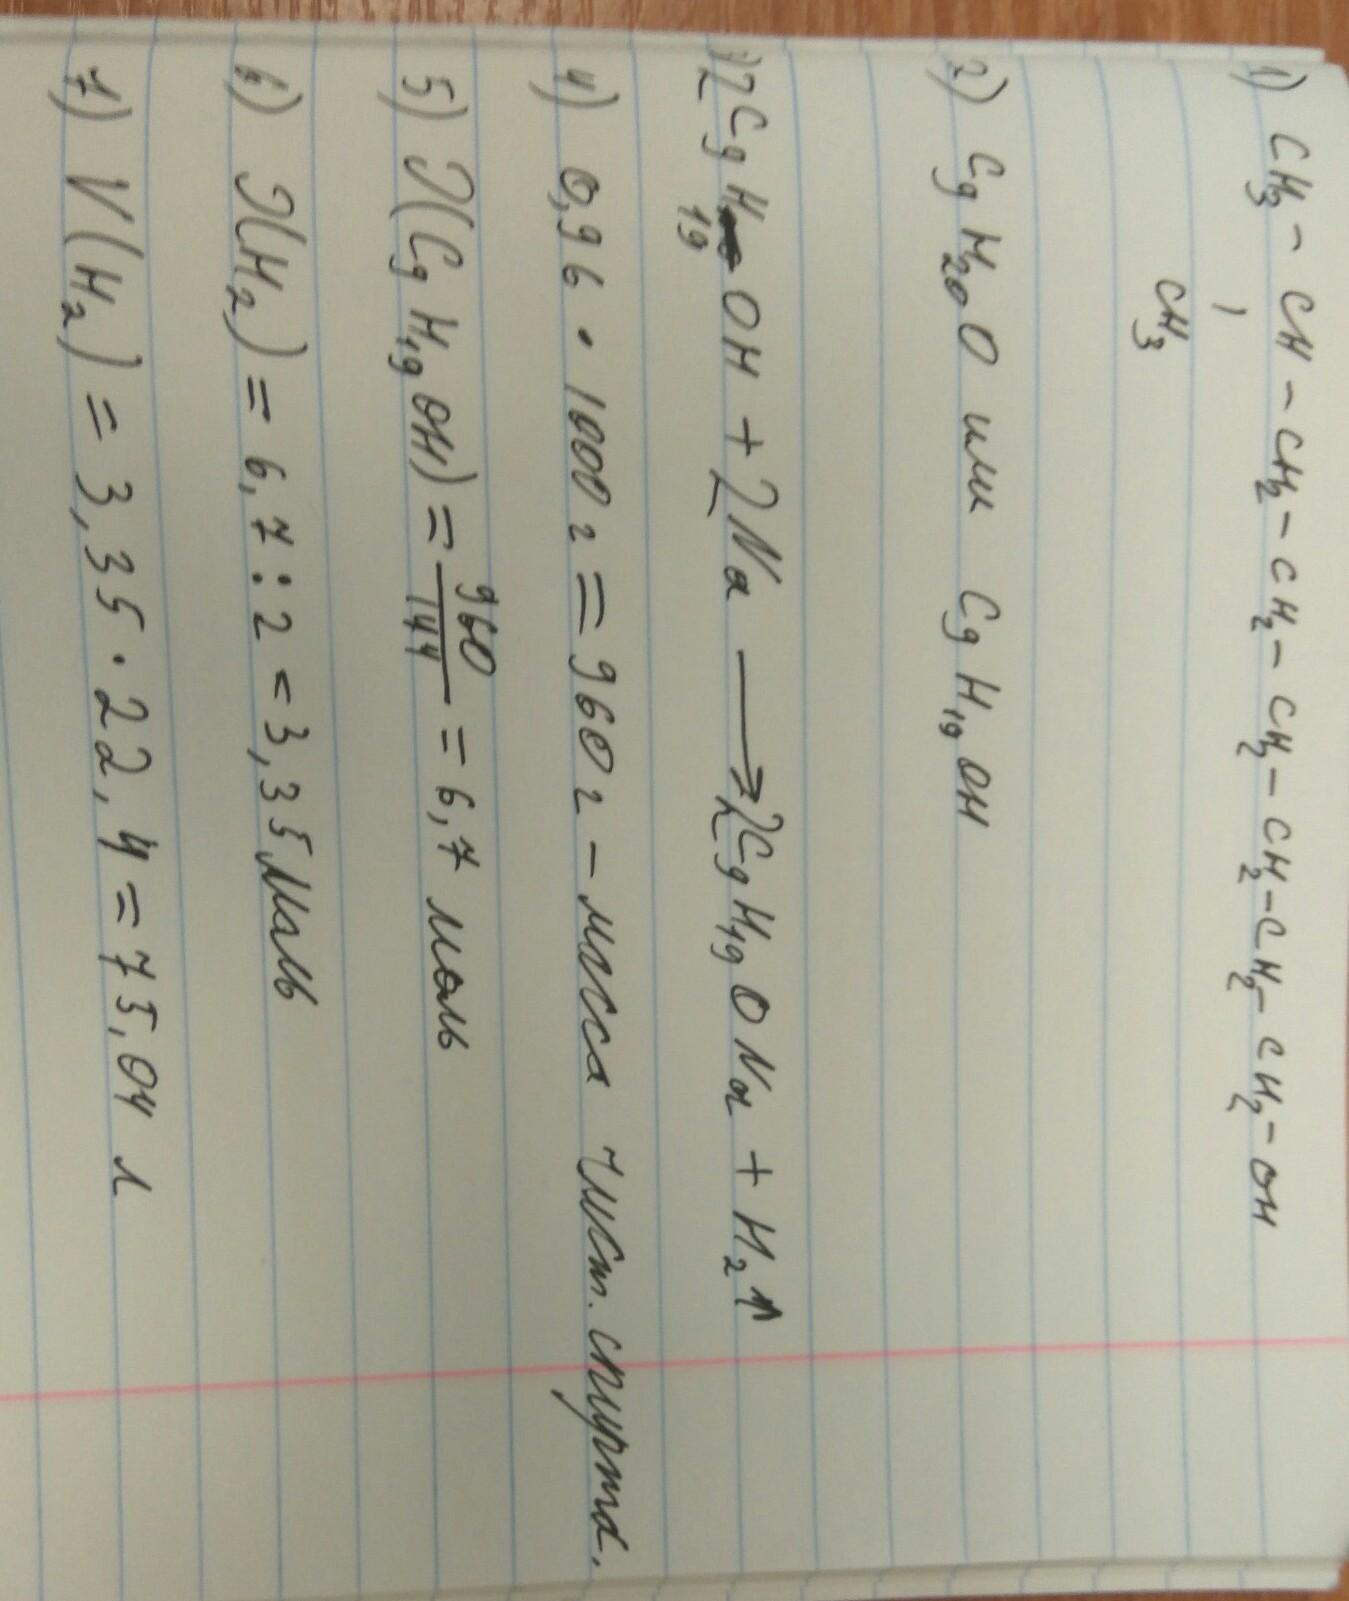 1) CH₃ - CH - CH₂ - CH₂ - CH₂ - CH₂ - CH₂ - CH₂ - OH
CH₃
2) C₉H₂₀O или C₉H₁₉OH
3) 2C₉H₁₉OH + 2Na ⟶ 2C₉H₁₉ONa + H₂↑
4) 0,96 · 1000 г = 960 г - масса чист. спирта.
5) n(C₉H₁₉OH) = 960/144 = 6,7 моль
6) n(H₂) = 6,7 : 2 = 3,35 моль
7) V(H₂) = 3,35 · 22,4 = 75,04 л